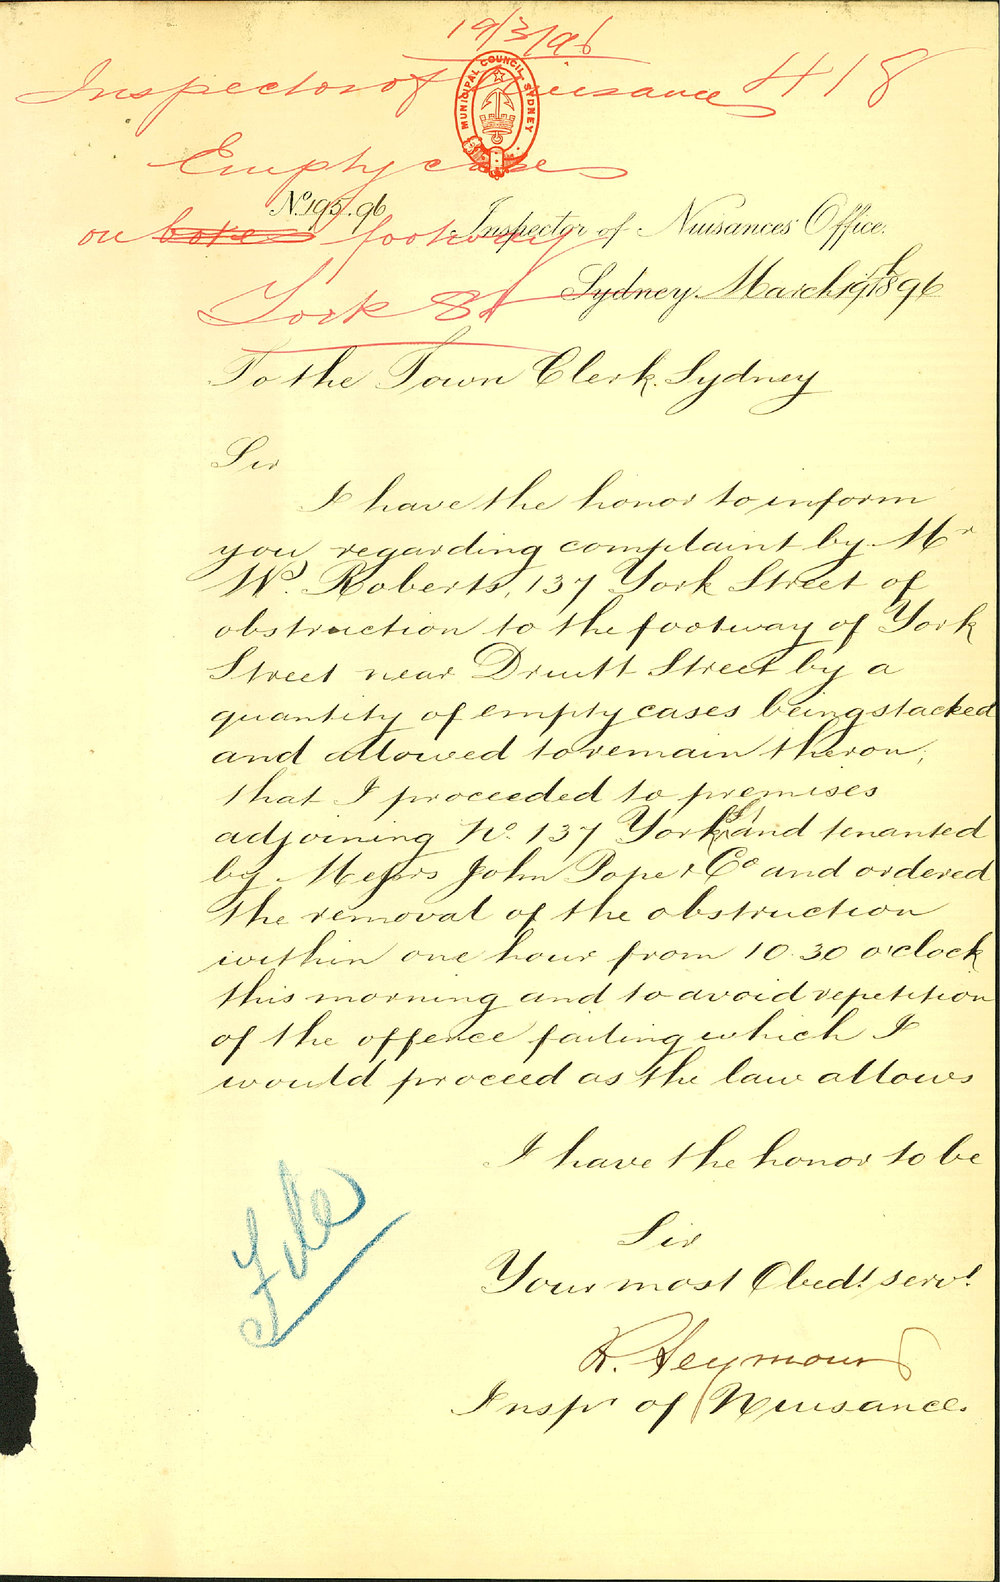 19/3/96
Inspector of Nuisances 418
MUNICIPAL COUNCIL SYDNEY
Empty cases
No. 195.96
Inspector of Nuisances' Office.
on boxes footway
Sydney March 19th 1896
York St
To the Town Clerk. Sydney
Sir
I have the honor to inform
you regarding complaint by Mr
W. Roberts, 137 York Street of
obstruction to the footway of York
Street near Druitt Street by a
quantity of empty cases being stacked
and allowed to remain theron;
that I proceeded to premises
adjoining No. 137 York St and tenanted
by Messrs John Pope & Co and ordered
the removal of the obstruction
within one hour from 10.30 o'clock
this morning and to avoid repetition
of the offence failing which I
would proceed as the law allows
I have the honor to be
Sir
Your most Obedt. servt.
File
R. Seymour
Inspr of Nuisances